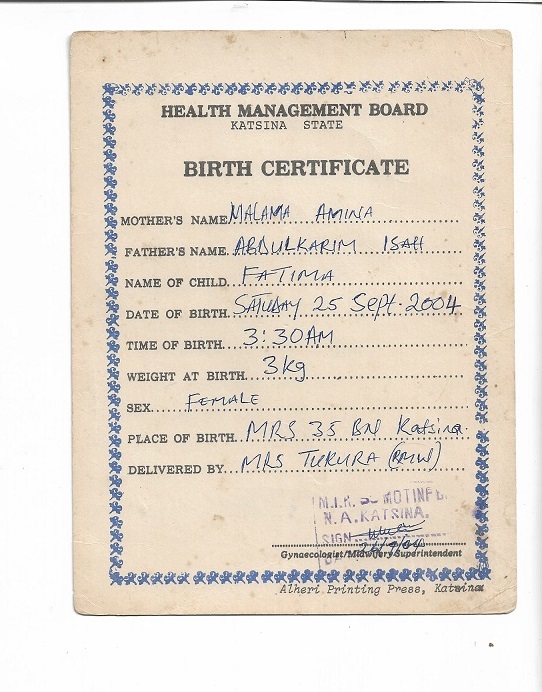 HEALTH MANAGEMENT BOARD
KATSINA STATE
BIRTH CERTIFICATE
MOTHER'S NAME MALAMA AMINA
FATHER'S NAME ABDULKARIM ISAH
NAME OF CHILD FATIMA
DATE OF BIRTH SATUDAY 25 Sept. 2004
TIME OF BIRTH 3:30AM
WEIGHT AT BIRTH 3kg
SEX FEMALE
PLACE OF BIRTH MRS 35 BN Katsina
DELIVERED BY MRS TUKURA (RMW)
N.A. KATSINA.
SIGN
Gynaecologist/Midwifery Superintendent
Alheri Printing Press, Katsina